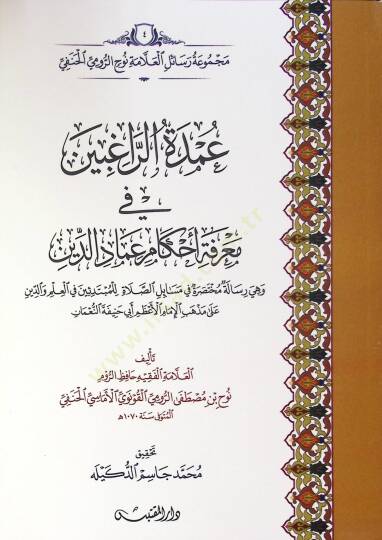 ٤
مَجْمُوعَةُ رَسَائِلِ الْعَلَّامَةِ نُوحِ الرُّومِيِّ الْحَنَفِيِّ
عُمْدَةُ الرَّاغِبِينَ
فِي
مَعْرِفَةِ أَحْكَامِ عِمَادِ الدِّينِ
وَهِيَ رِسَالَةٌ مُخْتَصَرَةٌ فِي مَسَائِلِ الصَّلَاةِ لِلْمُبْتَدِئِينَ فِي الْعِلْمِ وَالدِّينِ
عَلَى مَذْهَبِ الْإِمَامِ الْأَعْظَمِ أَبِي حَنِيفَةَ النُّعْمَانِ
تَأْلِيفُ
الْعَلَّامَةِ الْفَقِيهِ حَافِظِ الرُّومِ
نُوحِ بْنِ مُصْطَفَى الرُّومِيِّ الْقُونَوِيِّ الْأَمَاسِيِّ الْحَنَفِيِّ
الْمُتَوَفَّى سَنَةَ ١٠٧٠هـ
تَحْقِيقُ
مُحَمَّد جَاسِم الدُّكَيْلَه
دَارُ الْمُقْتَبَسِ